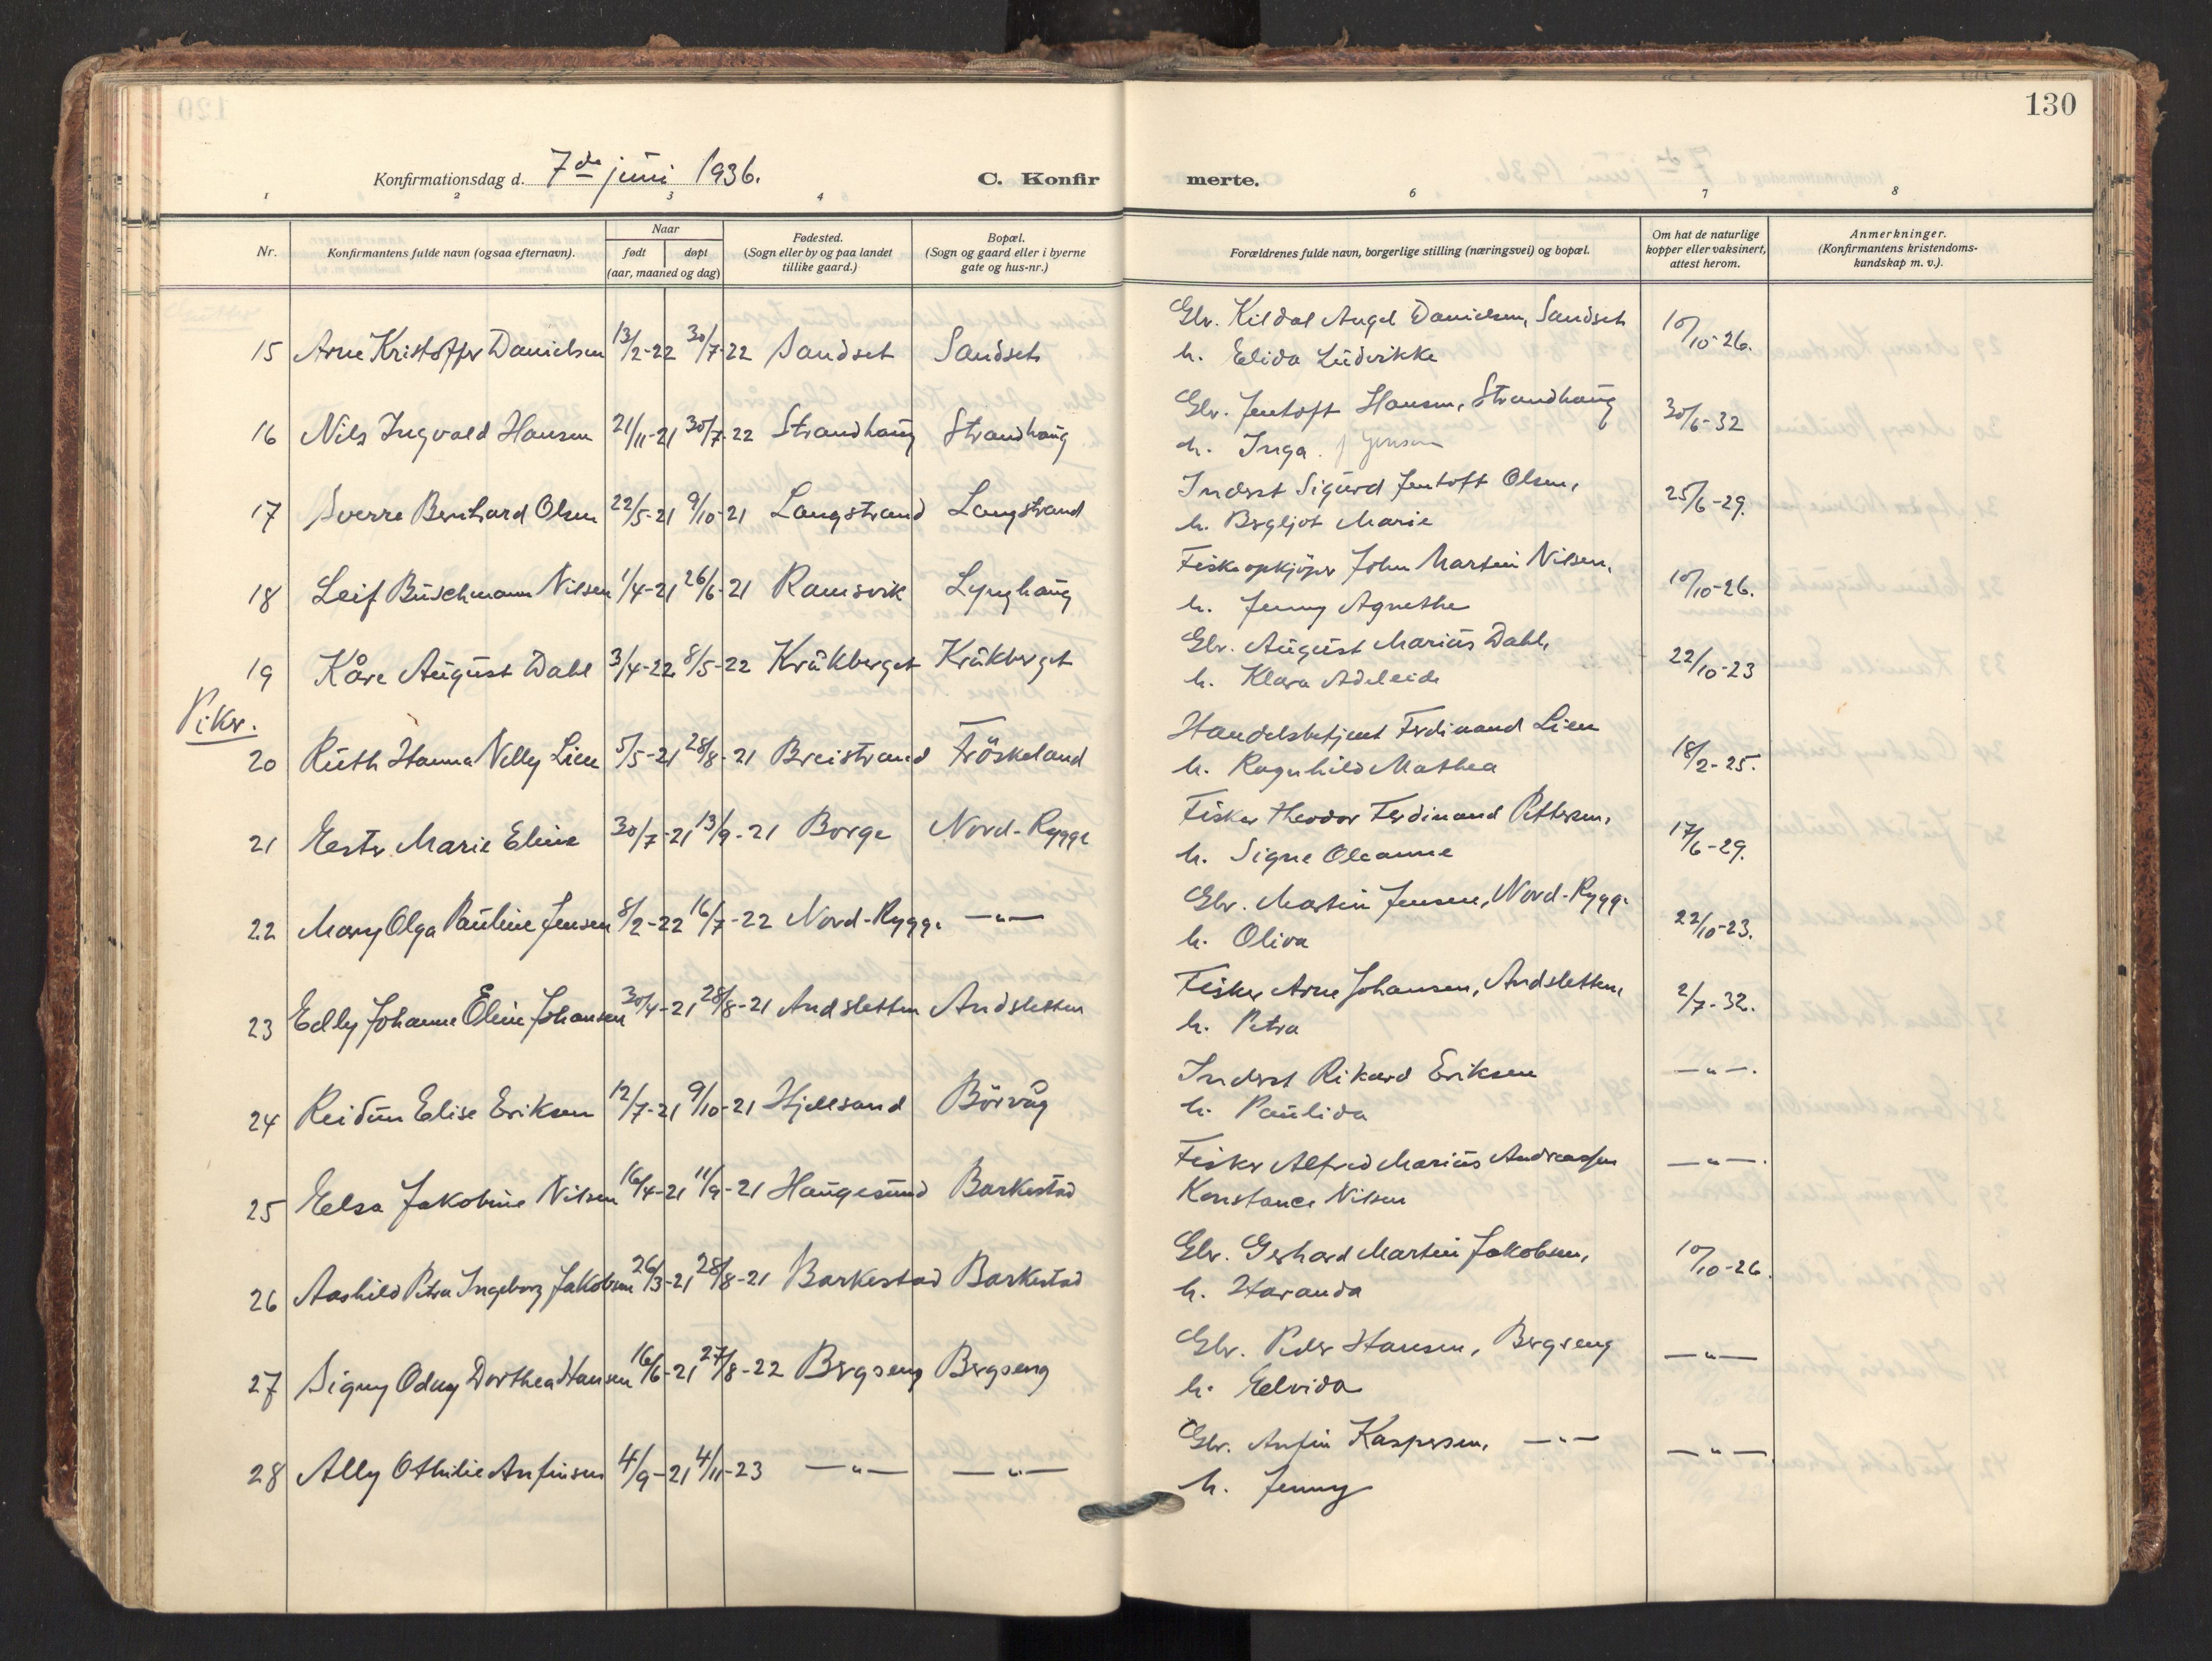 130
Konfirmationsdag d. 7de juni 1936.
C. Konfirmerte.
1 2 3 4 6 7 8
Nr. Konfirmantens fulde navn (ogsaa efternavn). Naar født døpt (aar, maaned og dag) Fødested. (Sogn eller by og paa landet tillike gaard.) Bopæl. (Sogn og gaard eller i byerne gate og hus-nr.) Forældrenes fulde navn, borgerlige stilling (næringsvei) og bopæl. Om hat de naturlige kopper eller vaksinert, attest herom. Anmerkninger. (Konfirmantens kristendomskundskap m. v.).
15 Arne Kristoffer Danielsen 13/2-22 30/7-22 Sandset Sandset Gbr. Kildal Angel Danielsen, Sandset 10/10-26.
h. Elida Ludvikke
16 Nils Ingvald Hansen 21/11-21 30/7-22 Strandhaug Strandhaug Gbr. Jentoft Hansen, Strandhaug 30/6-32
h. Inga. f Jensen
17 Sverre Bernhard Olsen 22/5-21 9/10-21 Langstrand Langstrand Inderst Sigurd Jentoft Olsen, 25/6-29.
h. Bergljot Marie
18 Leif Buschmann Nilsen 1/4-21 26/6-21 Ramsvik Lynghaug Fiskeopkjöper John Martin Nilsen, 10/10-26.
h. Jenny Agnethe
19 Kåre August Dahl 3/4-22 8/5-22 Kråkberget Kråkberget Gbr. August Marius Dahl, 22/10-23
h. Klara Adeleide
Piker.
20 Ruth Hanna Nelly Lien 5/5-21 28/8-21 Breistrand Fröskeland Handelsbetjent Ferdinand Lien 18/2-25.
h. Ragnhild Mathea
21 Ester Marie Eline 30/7-21 13/9-21 Borge Nord-Rygge Fisker Theodor Ferdinand Pettersen, 17/6-29.
h. Signe Oleanne
22 Mary Olga Pauline Jensen 8/2-22 16/7-22 Nord-Rygge —"— Gbr. Martin Jensen, Nord-Rygge 22/10-23.
h. Oliva
23 Edly Johanne Eline Johansen 30/4-21 28/8-21 Andsletten Andsletten Fisker Arne Johansen, Andsletten, 2/7-32.
h. Petra
24 Reidun Elise Eriksen 12/7-21 9/10-21 Hjellsand Börvåg Inderst Rikard Eriksen —"—.
h. Paulida
25 Elsa Jakobine Nilsen 16/4-21 11/9-21 Haugesund Barkestad Fisker Alfred Marius Andreassen —"—.
Konstance Nilsen
26 Aashild Petra Ingeborg Jakobsen 26/3-21 28/8-21 Barkestad Barkestad Gbr. Gerhard Martin Jakobsen, 10/10-26.
h. Haranda
27 Signy Odny Dorthea Hansen 16/6-21 27/8-22 Bergseng Bergseng Gbr. Peder Hansen, Bergseng —"—
h. Elvida
28 Ally Othilie Anfinsen 4/9-21 4/11-23 —"— —"— Gbr. Anfin Kaspersen, —"— —"—
h. Jenny